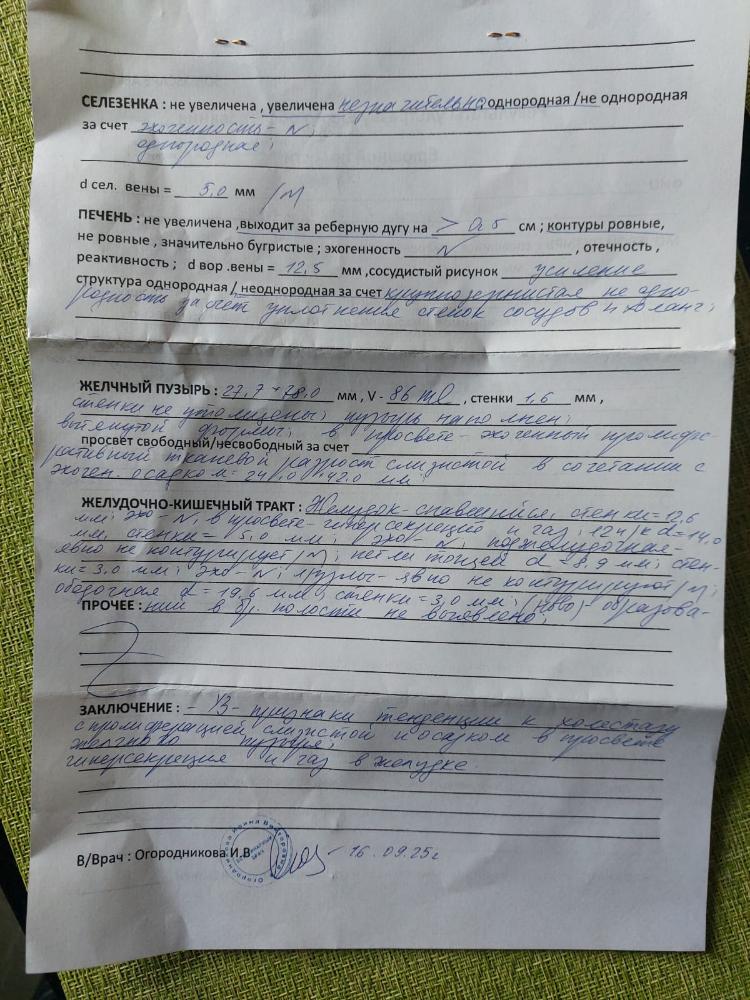 СЕЛЕЗЕНКА : не увеличена , увеличена незначительно однородная /не однородная
за счет эхогенность - N ;
однородная ;
d сел. вены = 5,0 мм /N
ПЕЧЕНЬ : не увеличена ,выходит за реберную дугу на > 0,5 см ; контуры ровные,
не ровные , значительно бугристые ; эхогенность N , отечность ,
реактивность ; d вор .вены = 12,5 мм ,сосудистый рисунок усиление
структура однородная / неоднородная за счет крупнозернистая не одно-
родность за счет уплотнения стенок сосудов и холанг ;
ЖЕЛЧНЫЙ ПУЗЫРЬ : 27,7 * 78,0 мм , V - 86 ml , стенки 1,6 мм ,
стенки не утолщены ; пузырь наполнен ;
вытянутой формы ; в просвете - эхогенный пролифе-
просвет свободный/несвободный за счет
ративный тканевой разрост слизистой в сочетании с
эхоген. осадком = 24,0 * 42,0 мм
ЖЕЛУДОЧНО-КИШЕЧНЫЙ ТРАКТ : Желудок - спавшийся, стенки = 12,6
мм ; эхо - N, в просвете - гиперсекрецию и газ ; 12п/к d = 14,0
мм, стенки = 5,0 мм ; эхо - N ; поджелудочная -
явно не контурирует /N ; петли тощей d = 8,9 мм ; стен-
ки = 3,0 мм ; эхо - N ; л/узлы - явно не контурируют /N ;
ободочная d = 19,6 мм, стенки = 3,0 мм ; (ново) образова-
ПРОЧЕЕ : ний в бр. полости не выявлено ;
ЗАКЛЮЧЕНИЕ : - УЗ - признаки тенденции к холестазу
с пролиферацией слизистой и осадком в просвете
желчного пузыря ;
гиперсекреция и газ в желудке.
В/Врач : Огородникова И.В. 16.09.25г